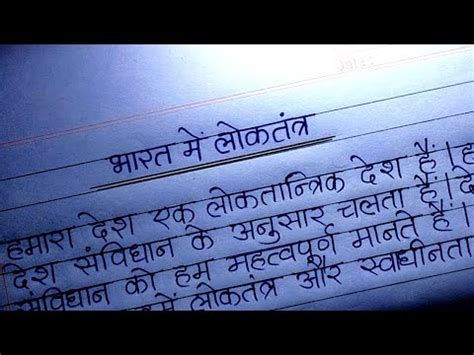 भारत में लोकतंत्र
हमारा देश एक लोकतान्त्रिक देश हैं।
देश संविधान के अनुसार चलता हैं।
संविधान को हम महत्वपूर्ण मानते है।
में लोकतंत्र और स्वाधीनता